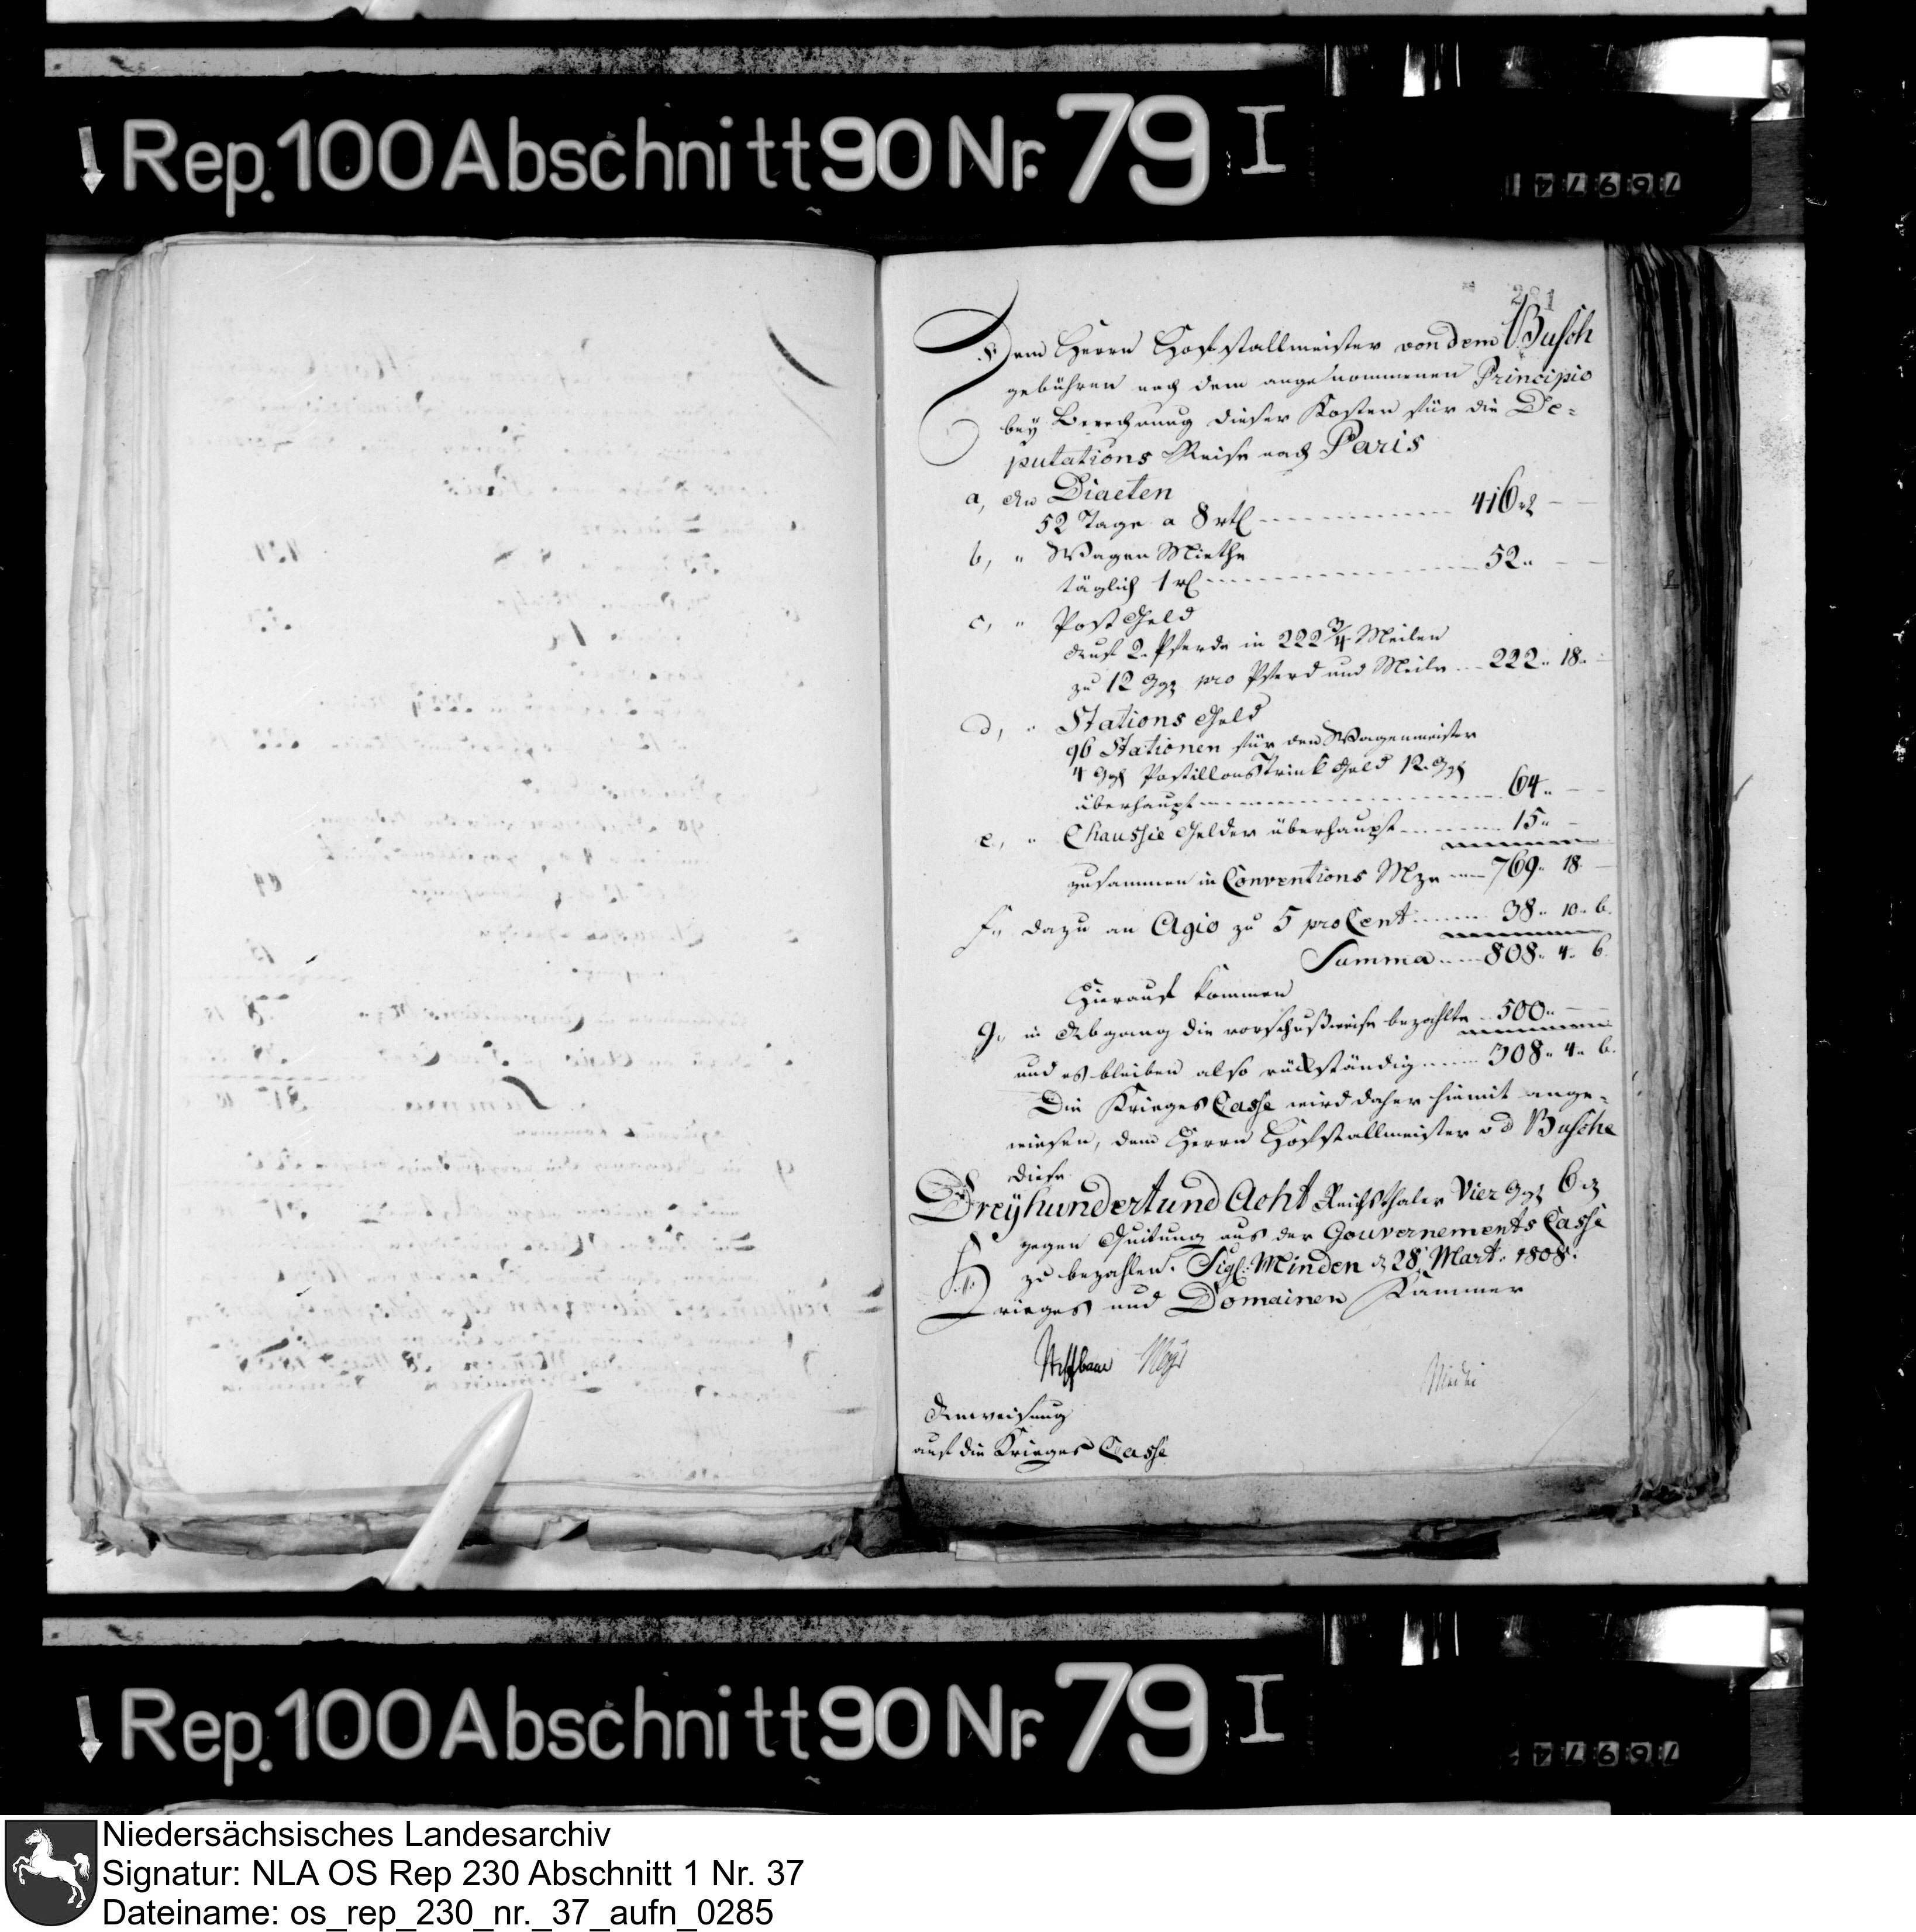 Rep. 100 Abschnitt 90 Nr. 79 I
769741
281
Dem Herrn Hofstallmeister von dem Busch
gebühren nach dem angenommenen Principio
bey Berechnung dieser Kosten für die De=
putations Reise nach Paris
a, An Diaeten
52 Tage a 8 rtl 416 rl
b, " Wagen Miethe
täglich 1 rl 52 "
c, " Post Geld
Auf 2 Pferde in 222 3/4 Meilen
zu 12 Ggr pro Pferd und Meile 222 " 18 "
d, " Stations Geld
96 Stationen für den Wagenmeister
4 Ggr Postillons Trink Geld 12 Ggr
überhaupt 64 "
e, " Chaussie Gelder überhaupt 15 "
zusammen in Conventions Mze 769 " 18
f, dazu an Agio zu 5 pro Cent 38 " 10 " 6
Summa 808 " 4 " 6
Hierauf kommen
g, in Abgang die vorschußweise bezahlte 500 "
und es bleiben also rückständig 308 " 4 " 6
Die Krieges Casse wird daher hiemit ange=
wiesen, dem Herrn Hofstallmeister v d Busche
diese
Dreyhundert und Acht Reichsthaler Vier Ggr 6 d
gegen Quitung aus der Gouvernements Casse
zu bezahlen. Sigl. Minden d 28 Mart. 1808.
Krieges und Domainen Kammer
Anweisung
auf die Krieges Casse
Rep. 100 Abschnitt 90 Nr. 79 I
769741
Niedersächsisches Landesarchiv
Signatur: NLA OS Rep 230 Abschnitt 1 Nr. 37
Dateiname: os_rep_230_nr._37_aufn_0285